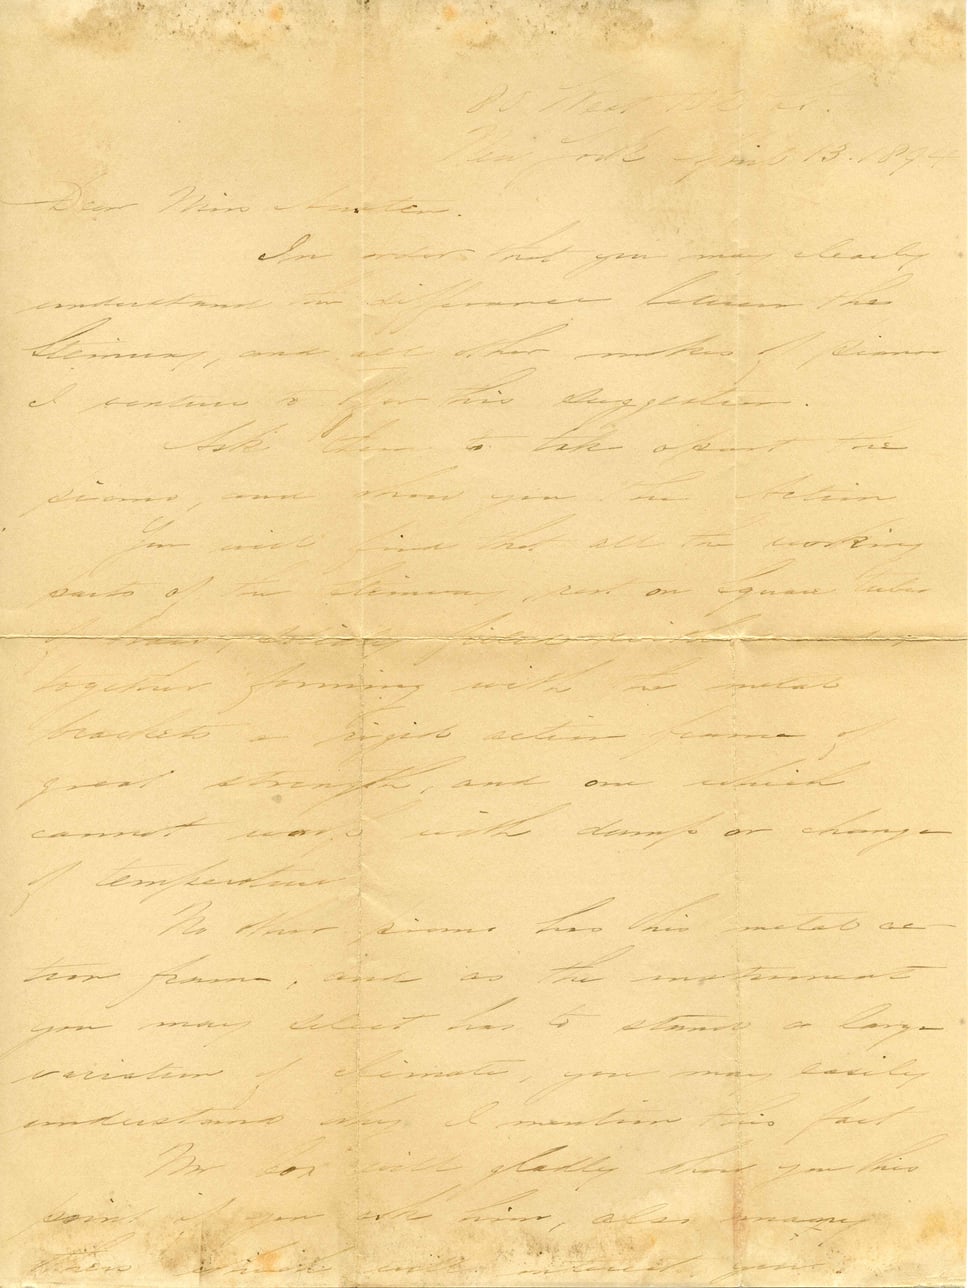 West st.
New York April 13. 1894
Dear Miss Austen.
In order that you may clearly
understand the difference between the
Steinway, and all other makes of pianos
I venture to offer this suggestion.
Ask them to take apart the
piano, and show you the Action
You will find that all the working
parts of the Steinway, rest on square tubes
of brass, solidly filled with
together forming with the metal
brackets a rigid action frame of
great strength, and one which
cannot warp with damp or change
of temperature
No other piano has this metal ac-
tion frame, and as the instrument
you may select has to stand a large
variation of climate, you may easily
understand why I mention this fact
Mr Cox will gladly show you this
point if you ask him, also many
others which will interest you